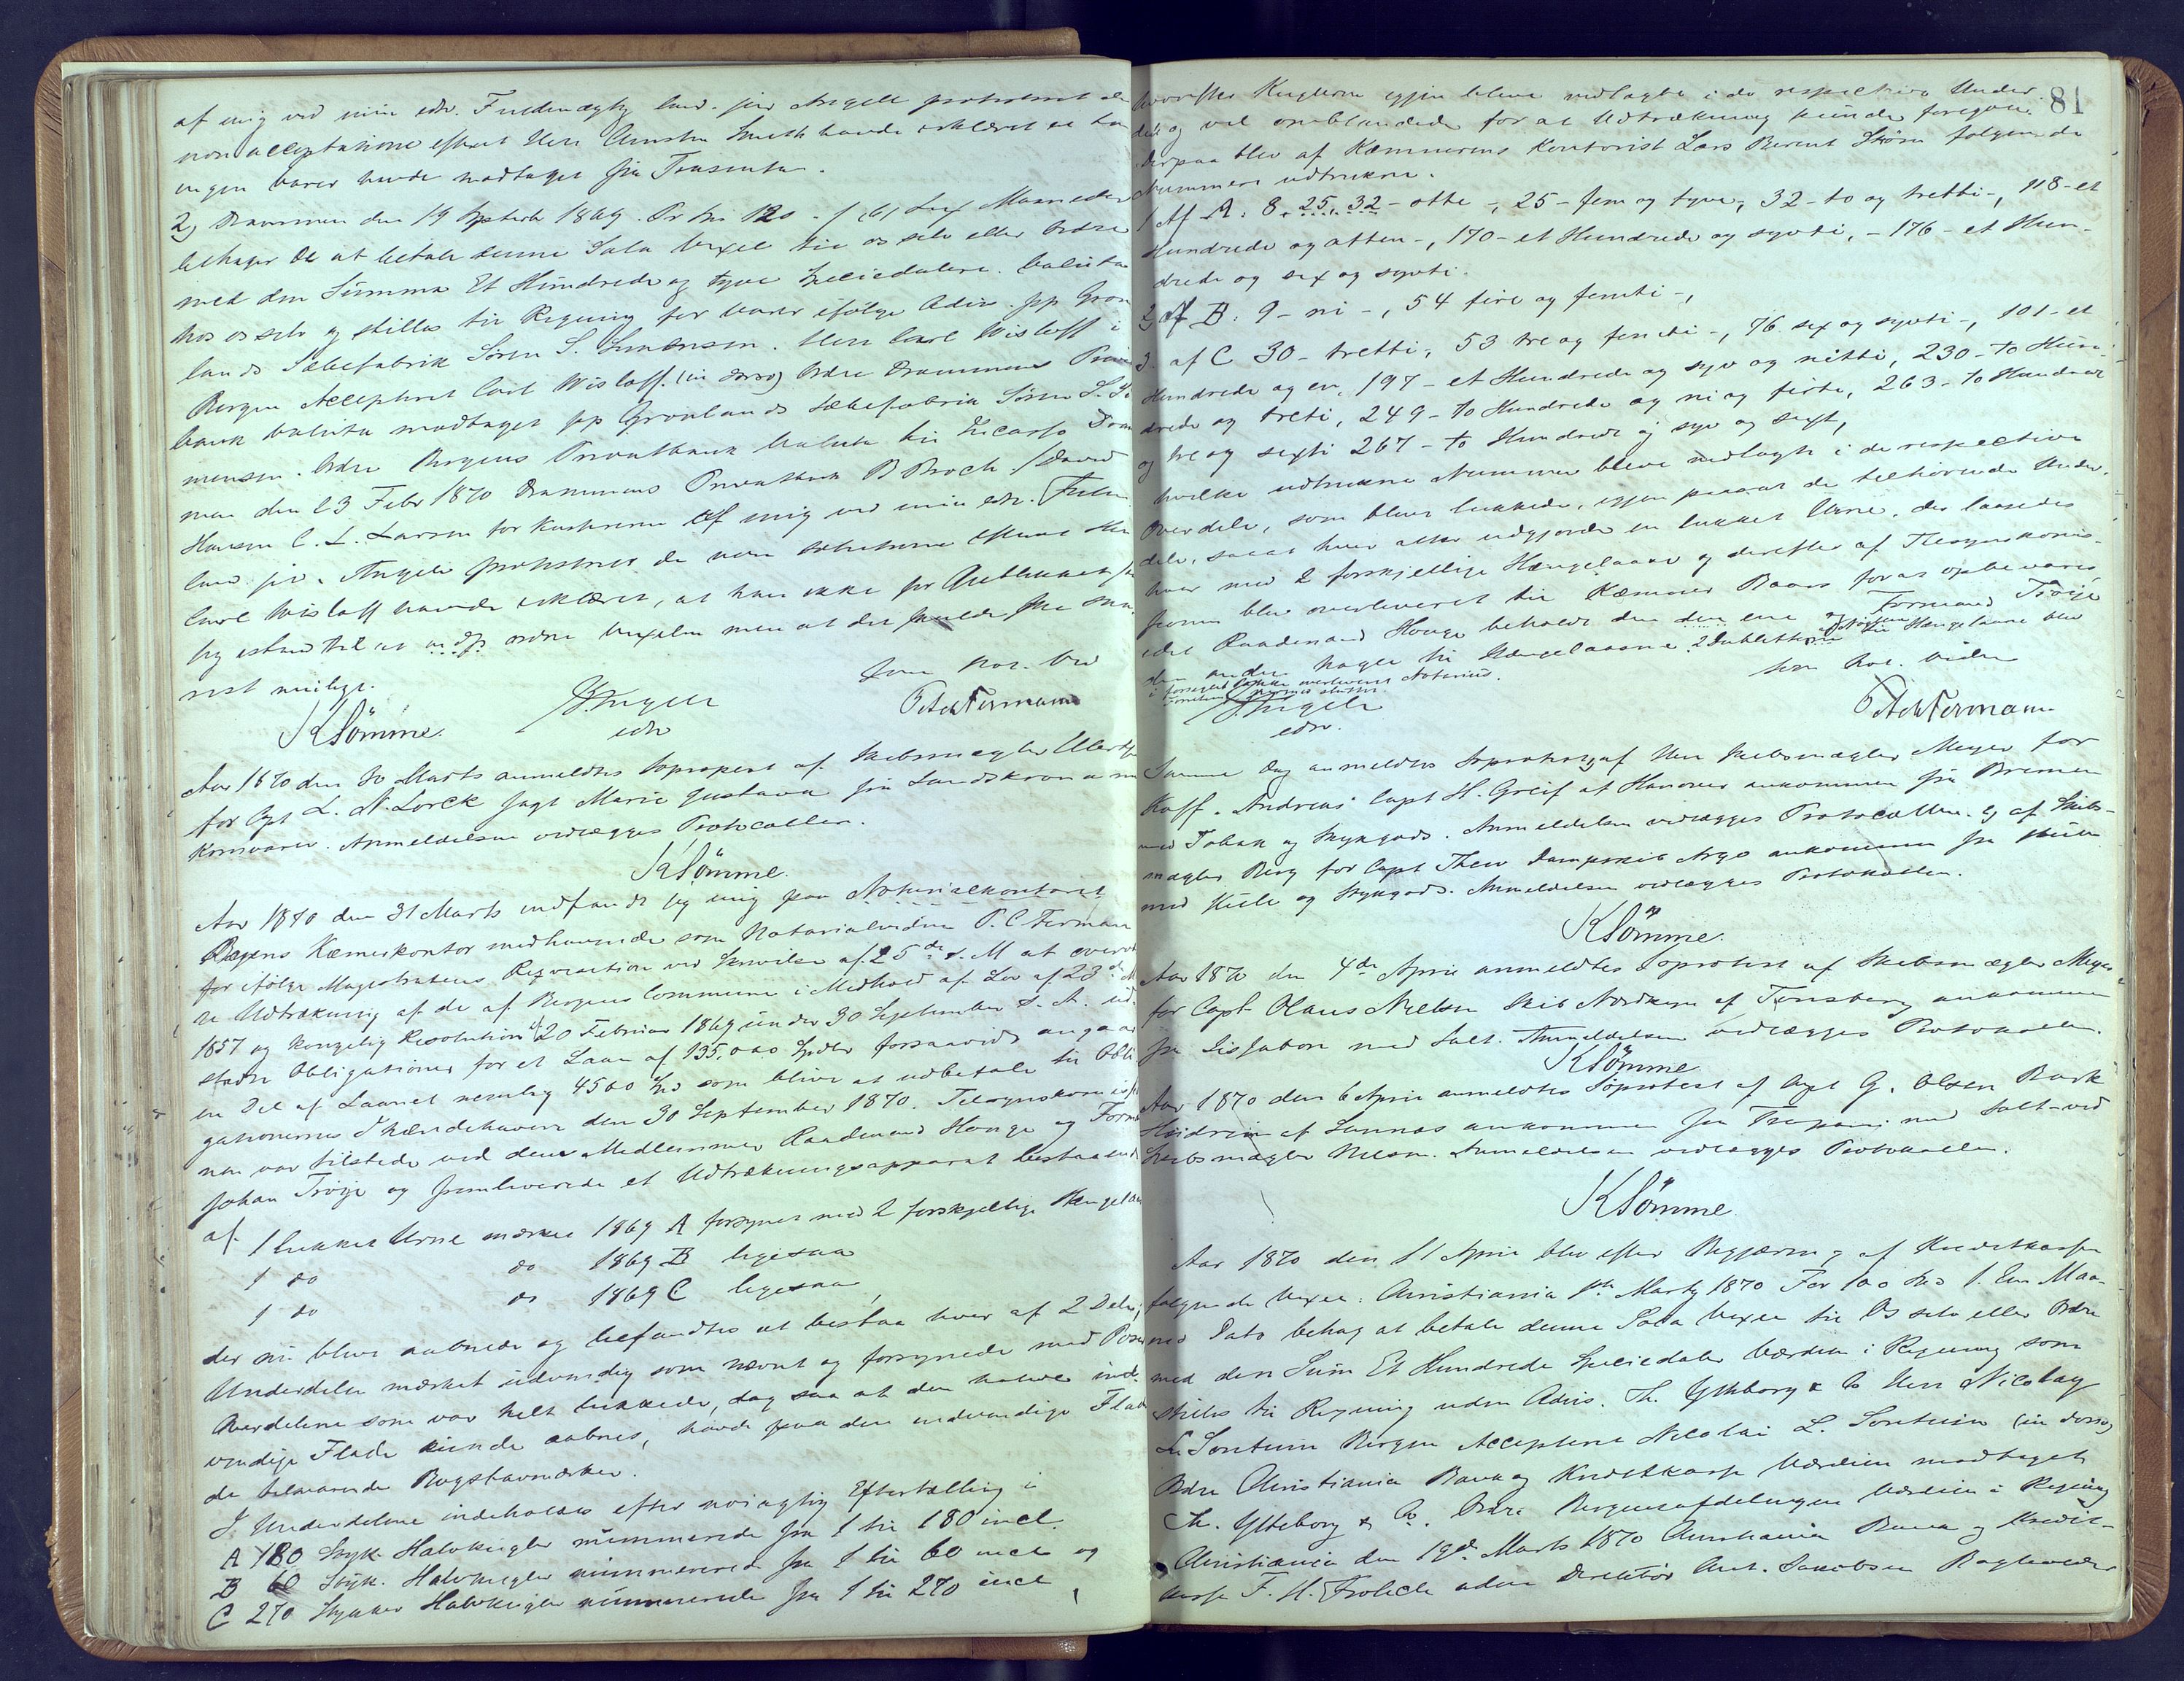 af mig ved min edv. Fuldmægtig land. jur Angell protesteret de
non acceptatione efterat Herr Smith havde erklæret at han
ingen varer havde modtaget fra Trasenten.
2, Drammen den 19 Septemb 1869. Pr Sp 120 - (6) Sex Maaneder
behager De at betale denne Sola Vexel til os selv eller Ordre
med den Summa Et Hundrede og tyve Speciedalere. Valuta
hos os selv og stilles til Regning for varer ifølge Advis. pp Grøn
lands Sæbefabrik Søren S. Simensen. Herr Carl Wisløff i
Bergen Accepteret Carl Wisløff. (in dorso) Ordre Drammens Privat
bank Valuta modtaget pp Grønlands Sæbefabrik Søren S. Si
mensen. Ordre Bergens Privatbank Valuta til Incasso Dram
men den 23 Febr 1870 Drammens Privatbank B Broch / David
Hansen C. L. Larsen for Kasserern Af mig ved min edv. Fuldm.
land. jur. Angell protesteret de non solutione efterat Herr
Carl Wisløff havde erklæret, at han ikke for Øieblikket
seg istand til at indfri ordre Vexelen men at det skulde ske sna
rest muligt.
som Not. Vid
KSömme. JAngell PAchtermann
edv
Aar 1870 den 30 Marts anmeldtes Søprotest af Skibsmægler
for Cpt L. N. Lorck Jagt Marie Gustava fra Landskrona med
Kornvarer. Anmeldelsen vedlægges Protocollen.
KSömme.
Aar 1870 den 31 Marts indfandt jeg mig paa Notarialkontoret
Bergens Kæmnerkontor medhavende som Notarialvidne P. C. Terman
for ifølge Magistratens Reqvisition ved Skrivelse af 25de d. M at overvæ
re Udtrækning af de af Bergens Commune i Medhold af Lov af 23de M
1857 og kongelig Resolution af 20 Februar 1869 under 30 September s. A. ud
stædte Obligationer for et Laan af 135,000 Spdlr forsaavidt angaar
en Del af Laanet nemlig 4500 Spd som blive at udbetale til Obli
gationernes Ihændehavere den 30 September 1870. Tilsynskommis
nen var tilstede ved dens Medlemmer Raadmand Houge og Formand
Johan Trøye og fremleverede et Udtrækningsapparat bestaaende
af 1 lukket Urne mærket 1869 A forsynet med 2 forskjellige Hængelaas
1 do do 1869 B ligesaa
1 do do 1869 C ligesaa,
der nu bleve aabnede og befandtes at bestaa hver af 2 Dele,
Underdelen mærket udvendig som nævnt og forsynede med
Overdelene som var helt lukkede, dog saa at den halve ind
vendige Flade kunde aabnes, havde paa den indvendige Flade
de tilsvarende Bogstavmærker.
I Underdelene indeholdes efter nøiagtig Eftertælling i
A 180 Styk. Halvkugler nummerede fra 1 til 180 incl.
B 60 Styk. Halvkugler nummererede fra 1 til 60 incl og
C 270 Stykker Halvkugler nummererede fra 1 til 270 incl
81
hvorefter Kuglerne igjen bleve nedlagte i de respective Under
dele og vel omblandede for at Udtrækning kunde foregaa.
Derpaa blev af Kæmnerens Kontorist Lars Berent Støren følgende
Nummere udtrukne.
1 Af A: 8, 25, 32 - otte -, 25 - fem og tyve, 32 - to og tretti -, 118 - et
Hundrede og atten -, 170 - et Hundrede og sytti, - 176 - et Hun-
drede og sex og sytti.
2, af B: 9 - ni -, 54 fire og femti -,
3. af C 30 - tretti, 53 tre og femti -, 76 sex og sytti -, 101 - et
Hundrede og en, 197 - et Hundrede og syv og nitti, 230 - to Hun-
drede og treti, 249 - to Hundrede og ni og førti, 263 - to Hundrede
og tre og sexti 267 - to Hundrede og syv og sexti,
hvilke udtrukne Nummere bleve nedlagte i de respective
Overdele, som bleve lukkede, igjen paasat de tilhørende Under.
dele, saaat hver atter udgjorde en lukket Urne, der laasedes
hver med 2 forskjellige Hængelaase og derefter af Tilsynskomis-
sionen blev overleveret til Kæmner Baars for at opbevares
idet Raadmand Houge beholdt den den ene og Formand Trøye
den anden Nøgle til Hængelaasene. 2 Dubletterne af Nøglene til Hængelaase blev
i forseglet Pakke overleveret Notarius.
Forretningen dermed sluttet. som Not. vidne
JAngell PAchtermann
edv.
Samme Dag anmeldtes Søprotest af Herr Skibsmægler Meyer for
Koff. Andreas Capt H. Greif af Hanover ankommen fra Bremen
med Tobak og Stykgods. Anmeldelsen vedlægges Protocollen. og af Skibs-
mægler Berg for Capt Thew Dampskib Argo ankommen fra Hull
med Kule og Stykgods. Anmeldelsen vedlægges Protokollen.
KSömme.
Aar 1870 den 4de April anmeldtes Søprotest af Skibsmægler Meyer
for Capt. Olaus Nielsen Skib Nordkyn af Tønsberg ankommen
fra Lissabon med Salt. Anmeldelsen vedlægges Protokollen.
KSömme
Aar 1870 den 6 April anmeldtes Søprotest af Capt G. Olsen Bark
Hvidrein af Sannæs ankommen fra Trapani med Salt - ved
Skibsmægler Nilsen. Anmeldelsen vedlægges Protokollen.
KSömme
Aar 1870 den 11 April blev efter Begjæring af Kreditkassen
følgende Vexel: Christiania 1th Marty 1870 For 100 Spd 1. Een Maa-
ned Dato behag at betale denne Sola Vexel til Os selv eller Ordre
med den Sum Et Hundrede Speciedaler Værdien i Regning som
stilles til Regning uden Advis. Th. Ytteborg & Co Herr Nicolay
L. Sontum Bergen Accepteret Nicolai L. Sontum (in dorso)
Ordre Christiania Bank og Kreditkasse Værdien modtaget
Th. Ytteborg & Co. Ordre Bergensafdelingen Værdien i Regning
Christiania den 19d. Marts 1870 Christiania Bank og Kredit-
kasse F. H. Frølich adm Direktør Ant. Jacobsen Bogholder